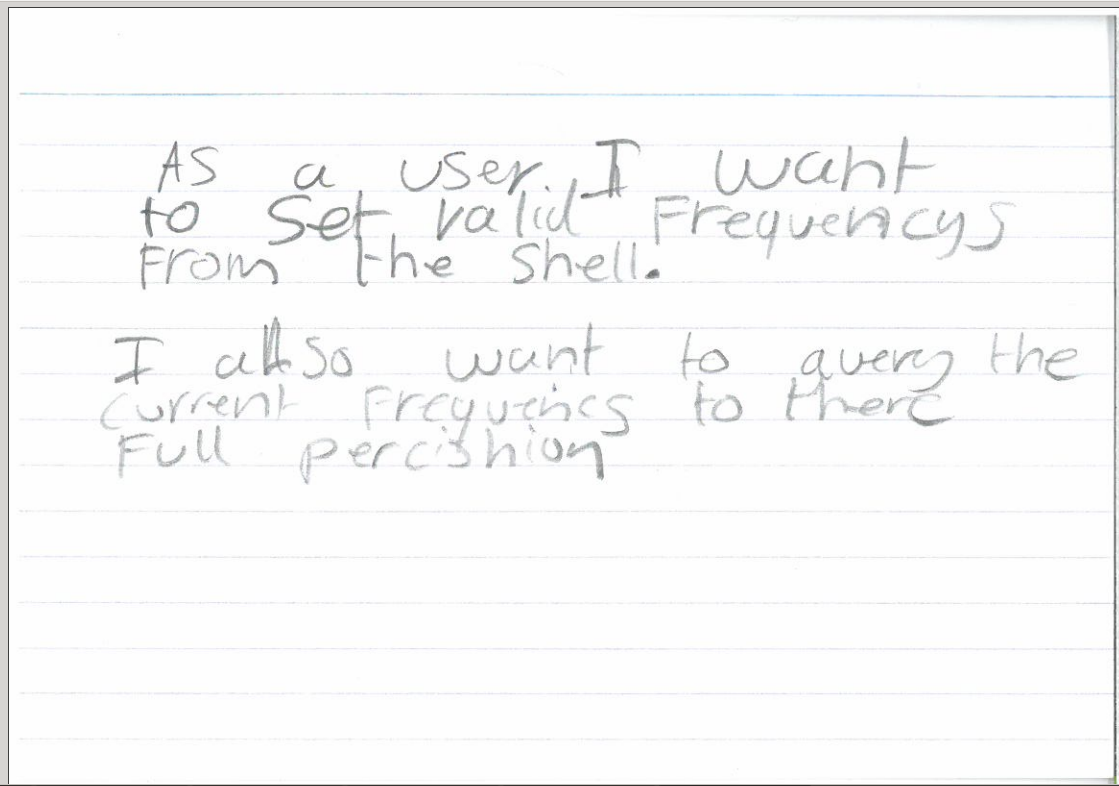 As a user I want
to set valid Frequencys
From the shell.
I also want to query the
current Frequencs to there
Full percishion